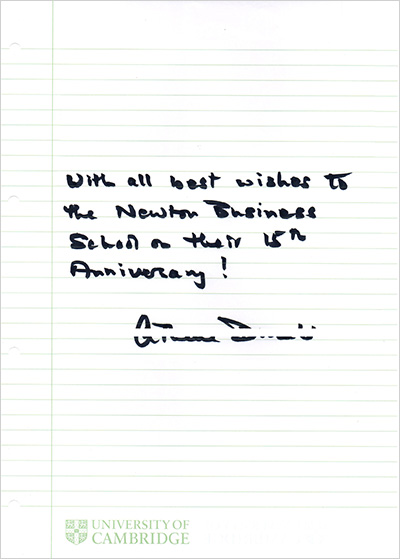 With all best wishes to
the Newton Business
School on their 15th
Anniversary!
UNIVERSITY OF
CAMBRIDGE